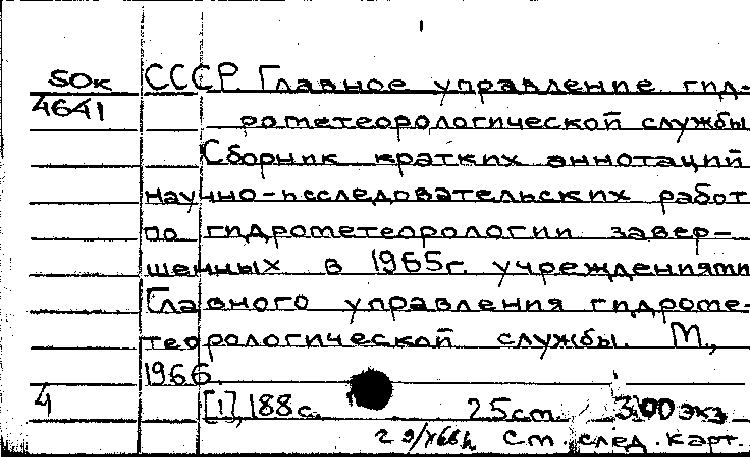 SОк СССР Главное управление гид-
4641 рометеорологической службы
Сборник кратких аннотаций
научно-исследовательских работ
по гидрометеорологии завер-
шенных в 1965г. учреждениями
Главного управления гидроме-
теорологической службы. М.,
1966.
4 [1], 188 с. 25см. 300 экз
См. след. карт.